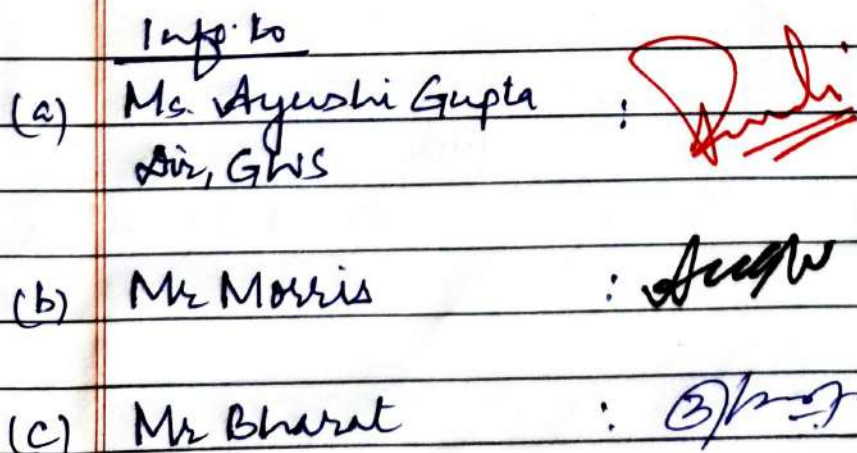 Info. to
(a) Ms. Ayushi Gupta :
Dir, GWS
(b) Mr Morris :
(c) Mr Bharat :